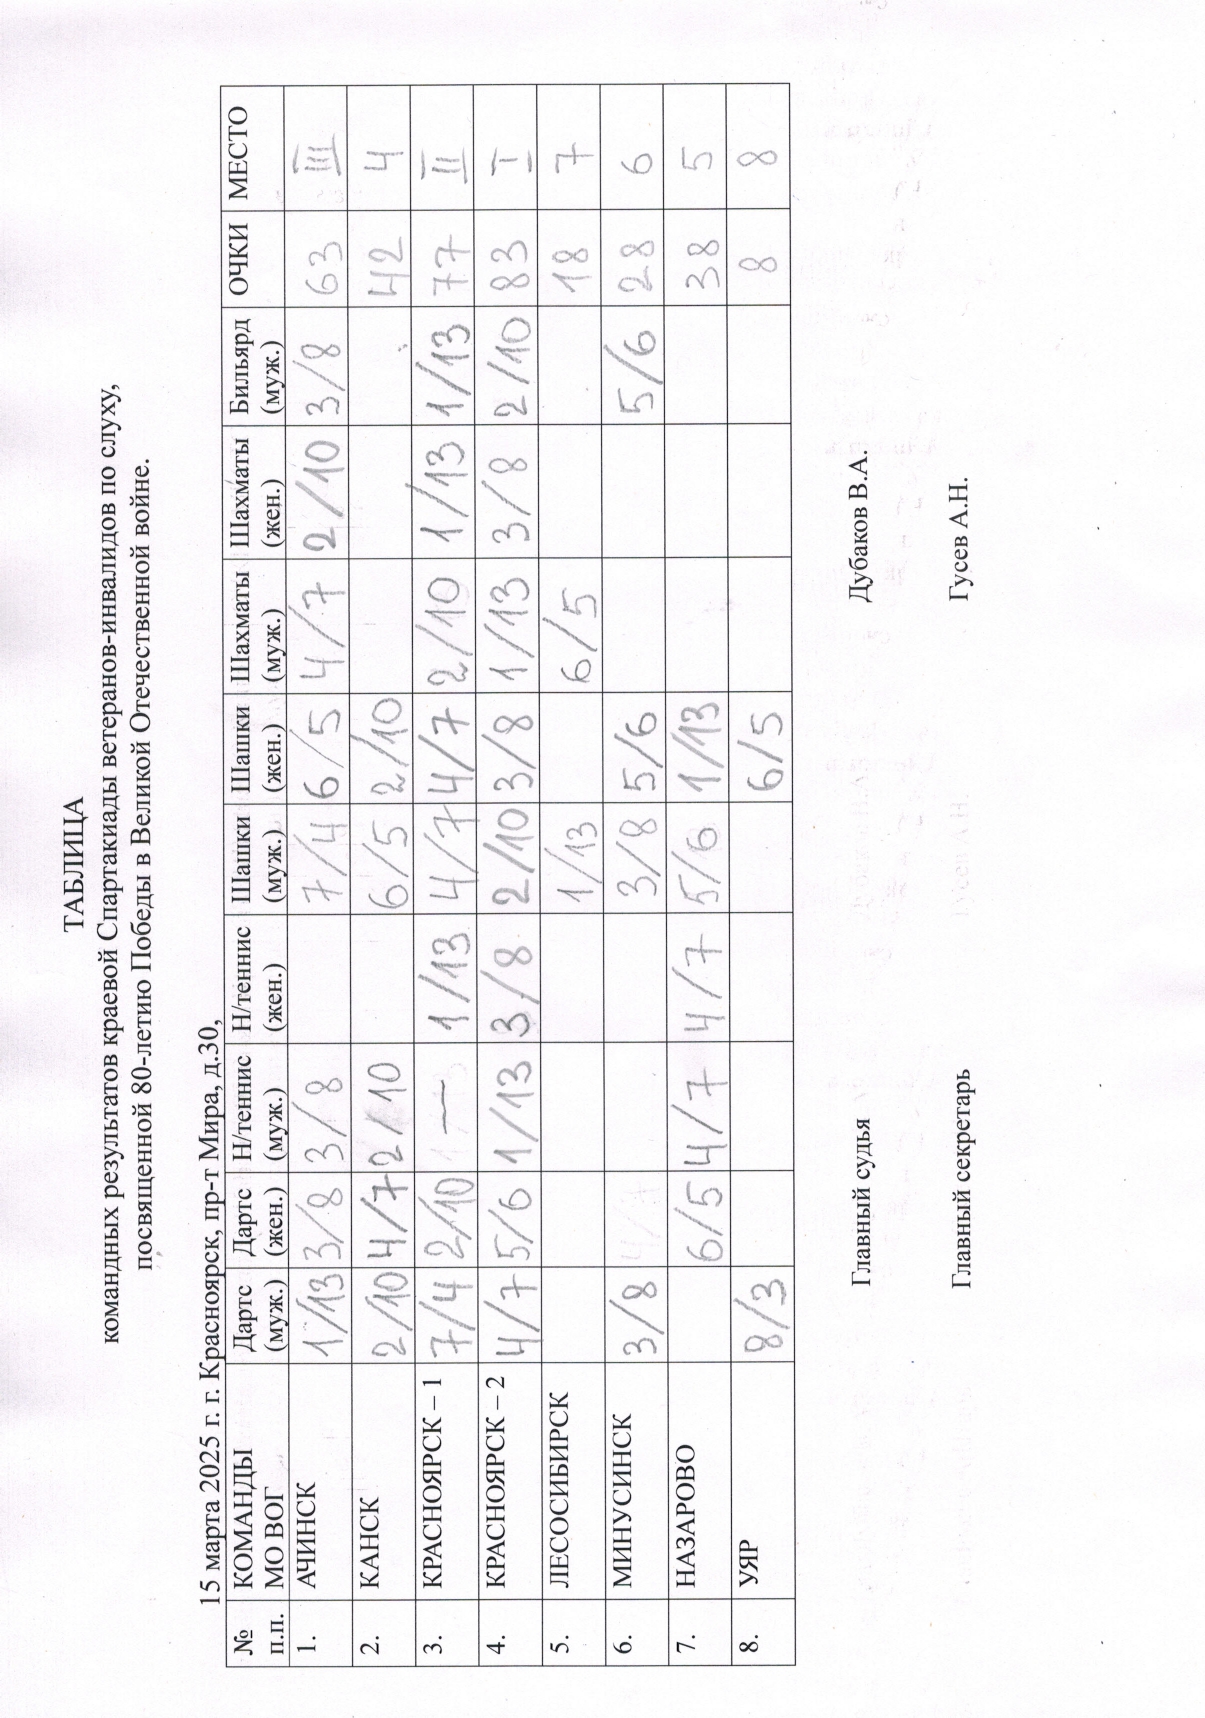 ТАБЛИЦА
командных результатов краевой Спартакиады ветеранов-инвалидов по слуху,
посвященной 80-летию Победы в Великой Отечественной войне.
15 марта 2025 г. г. Красноярск, пр-т Мира, д.30,
№ п.п. КОМАНДЫ МО ВОГ Дартс (муж.) Дартс (жен.) Н/теннис (муж.) Н/теннис (жен.) Шашки (муж.) Шашки (жен.) Шахматы (муж.) Шахматы (жен.) Бильярд (муж.) ОЧКИ МЕСТО
1. АЧИНСК 1/13 3/8 3/8 7/4 6/5 4/7 2/10 3/8 63 III
2. КАНСК 2/10 4/7 2/10 6/5 2/10 42 4
3. КРАСНОЯРСК – 1 7/4 2/10 — 1/13 4/7 4/7 2/10 1/13 1/13 77 II
4. КРАСНОЯРСК – 2 4/7 5/6 1/13 3/8 2/10 3/8 1/13 3/8 2/10 83 I
5. ЛЕСОСИБИРСК 1/13 6/5 18 7
6. МИНУСИНСК 3/8 3/8 5/6 5/6 28 6
7. НАЗАРОВО 6/5 4/7 4/7 5/6 1/13 38 5
8. УЯР 8/3 6/5 8 8
Главный судья Дубаков В.А.
Главный секретарь Гусев А.Н.